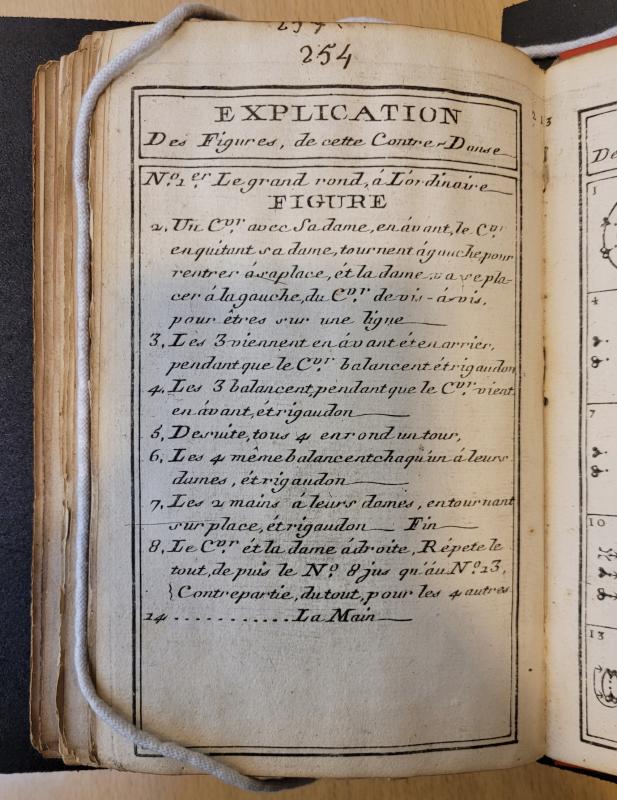 254
EXPLICATION
Des Figures, de cette Contre-Danse
N.º 1.er Le grand rond, á L'ordinaire
FIGURE
2. Un C.vr avec Sa dame, en ávant, le C.vr
en quitant sa dame, tournent á gauche, pour
rentrer á sa place, ét la dame va se pla-
cer á la gauche, du C.vr de vis-á-vis,
pour êtres sur une ligne
3. Les 3 viennent en ávant ét en arrier,
pendant que le C.vr balancent ét rigaudon
4. Les 3 balancent, pendant que le C.vr vient
en ávant, ét rigaudon
5. De suite, tous 4 en rond un tour,
6. Les 4 même balancent chaqu'un á leurs
dames, ét rigaudon
7. Les 2 mains á leurs dames, en tournant
sur place, ét rigaudon Fin
8. Le C.vr ét la dame á droite, Répete le
tout, de puis le N.º 8 jus qu'áu N.º 13,
} Contrepartie, du tout, pour les 4 autres
14 . . . . . . . . . . . La Main
213
De
1
4
7
10
13